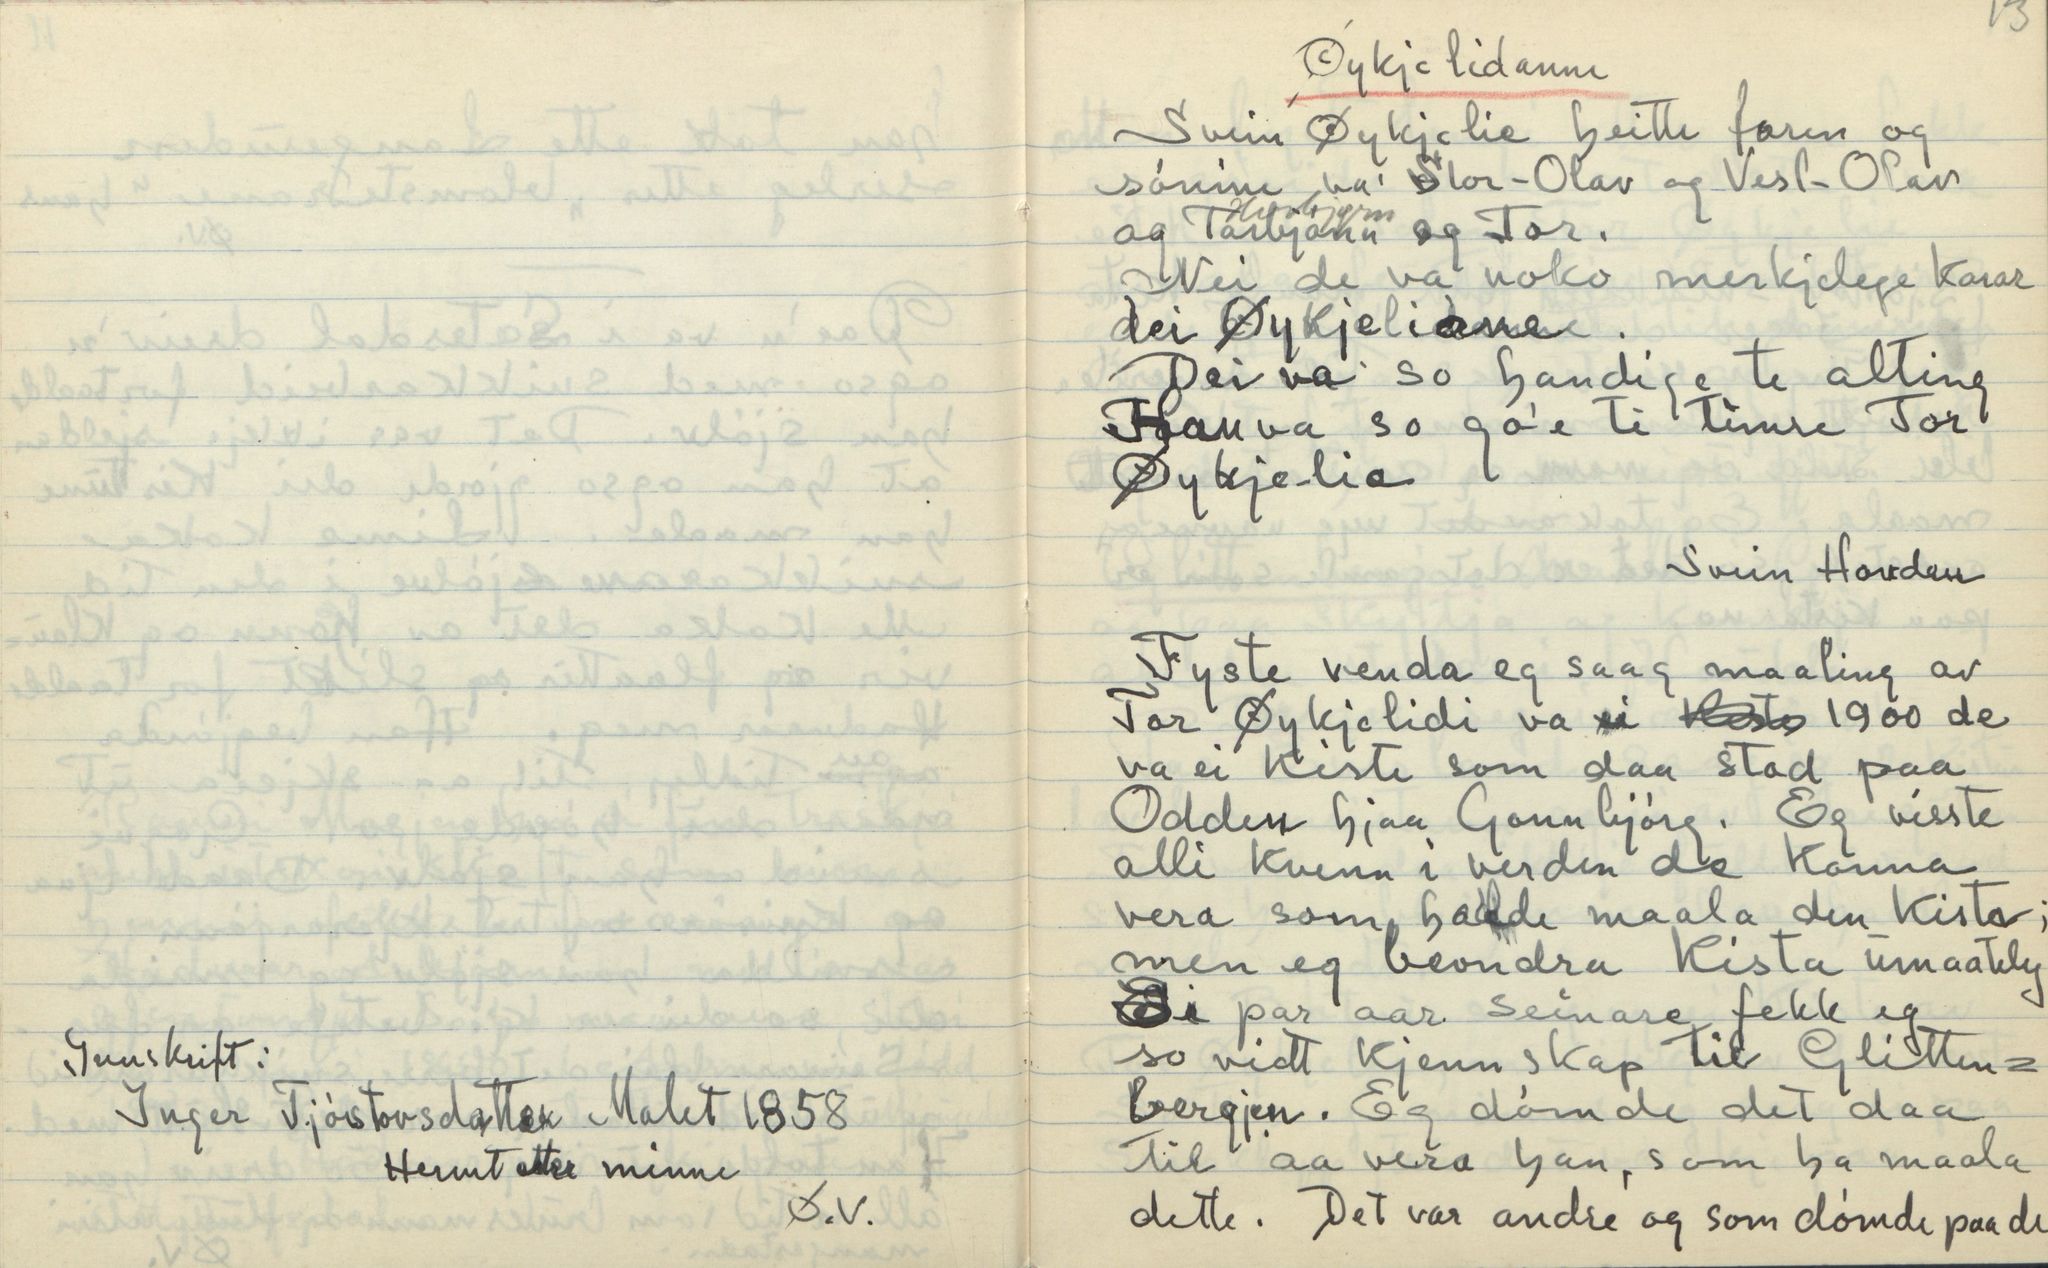 Innskrift:
Inger Tjóstovsdatter Malet 1858
Hermt etter minne
Ø.V.
13
Øykjelidanne
Svein Øykjelie heitte faren og
sónine va' Stor-Olav og Vesl-Olav
og Tarbjónn og Tor.
Nei de va noko merkjelege karar
dei Øykjeliane.
Dei va so handige te alting
Han va so go'e ti timre Tor
Øykjelie
Svein Hovden
Fyste venda eg saag maaling av
Tor Øykjelidi va i 1900 de
va ei kiste som daa stod paa
Odden hjaa Gonnbjórg. Eg visste
alli kvenn i verden de kanna
vera som hadde maala den kista;
men eg beundra kista umaateleg
Ei par aar seinare fekk eg
so vidt kjennskap til Glitten=
bergjen. Eg dómde det daa
til aa vera han, som ha maala
dette. Det var andre og som dómde paa de